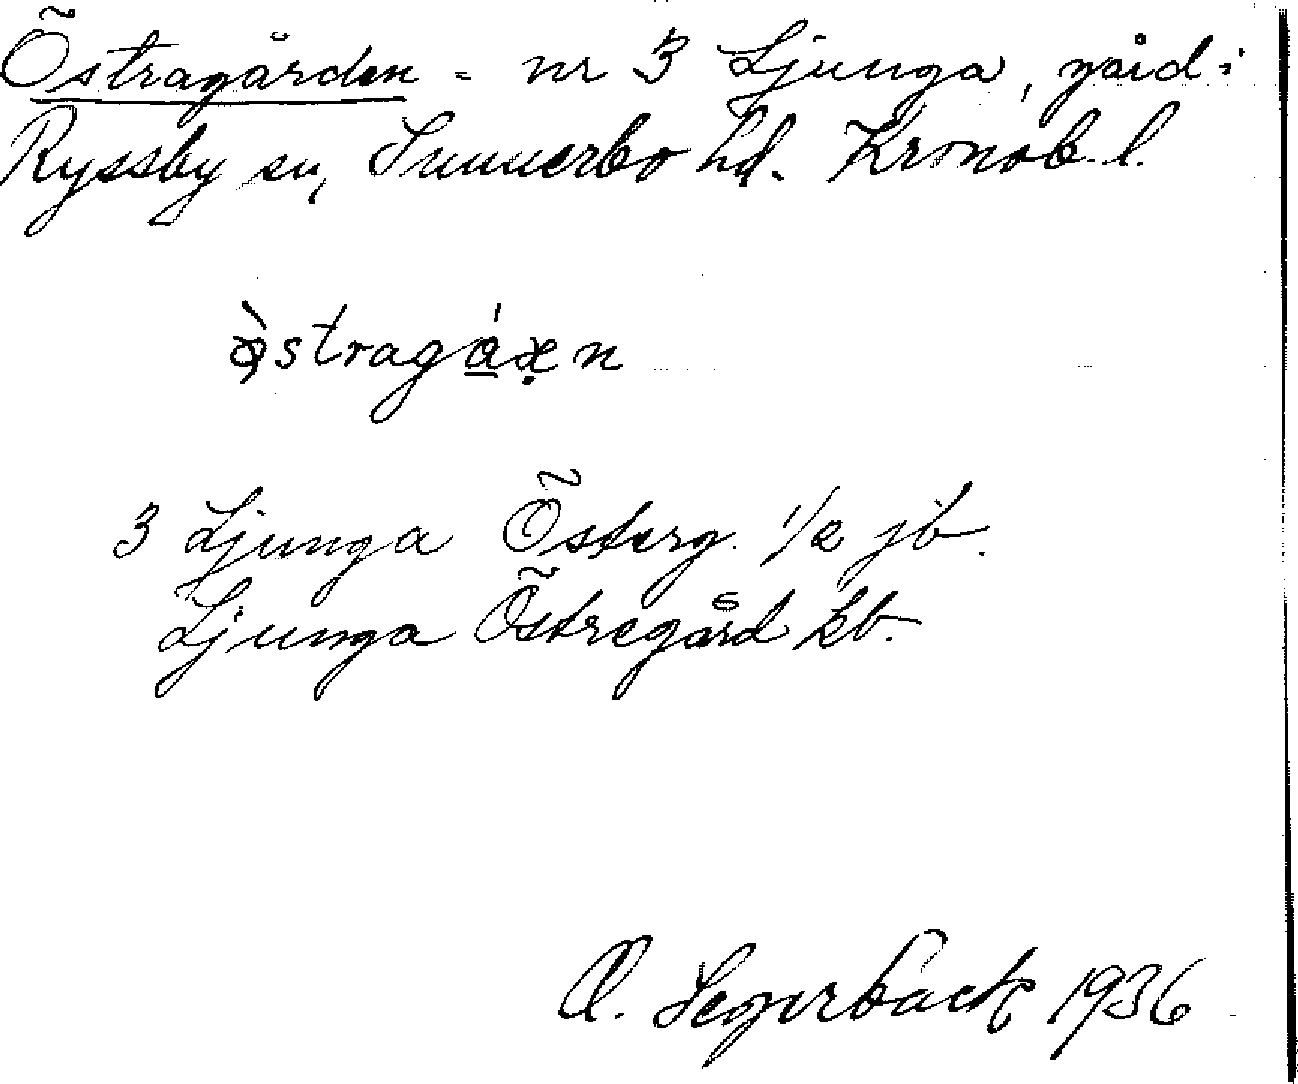 Östragården = nr 3 Ljunga, gård i
Ryssby sn, Sunnerbo hd. Kronob. l.
3 Ljunga Österg. 1/2 jb.
Ljunga Östregård kb.
O. Segerbäck 1936